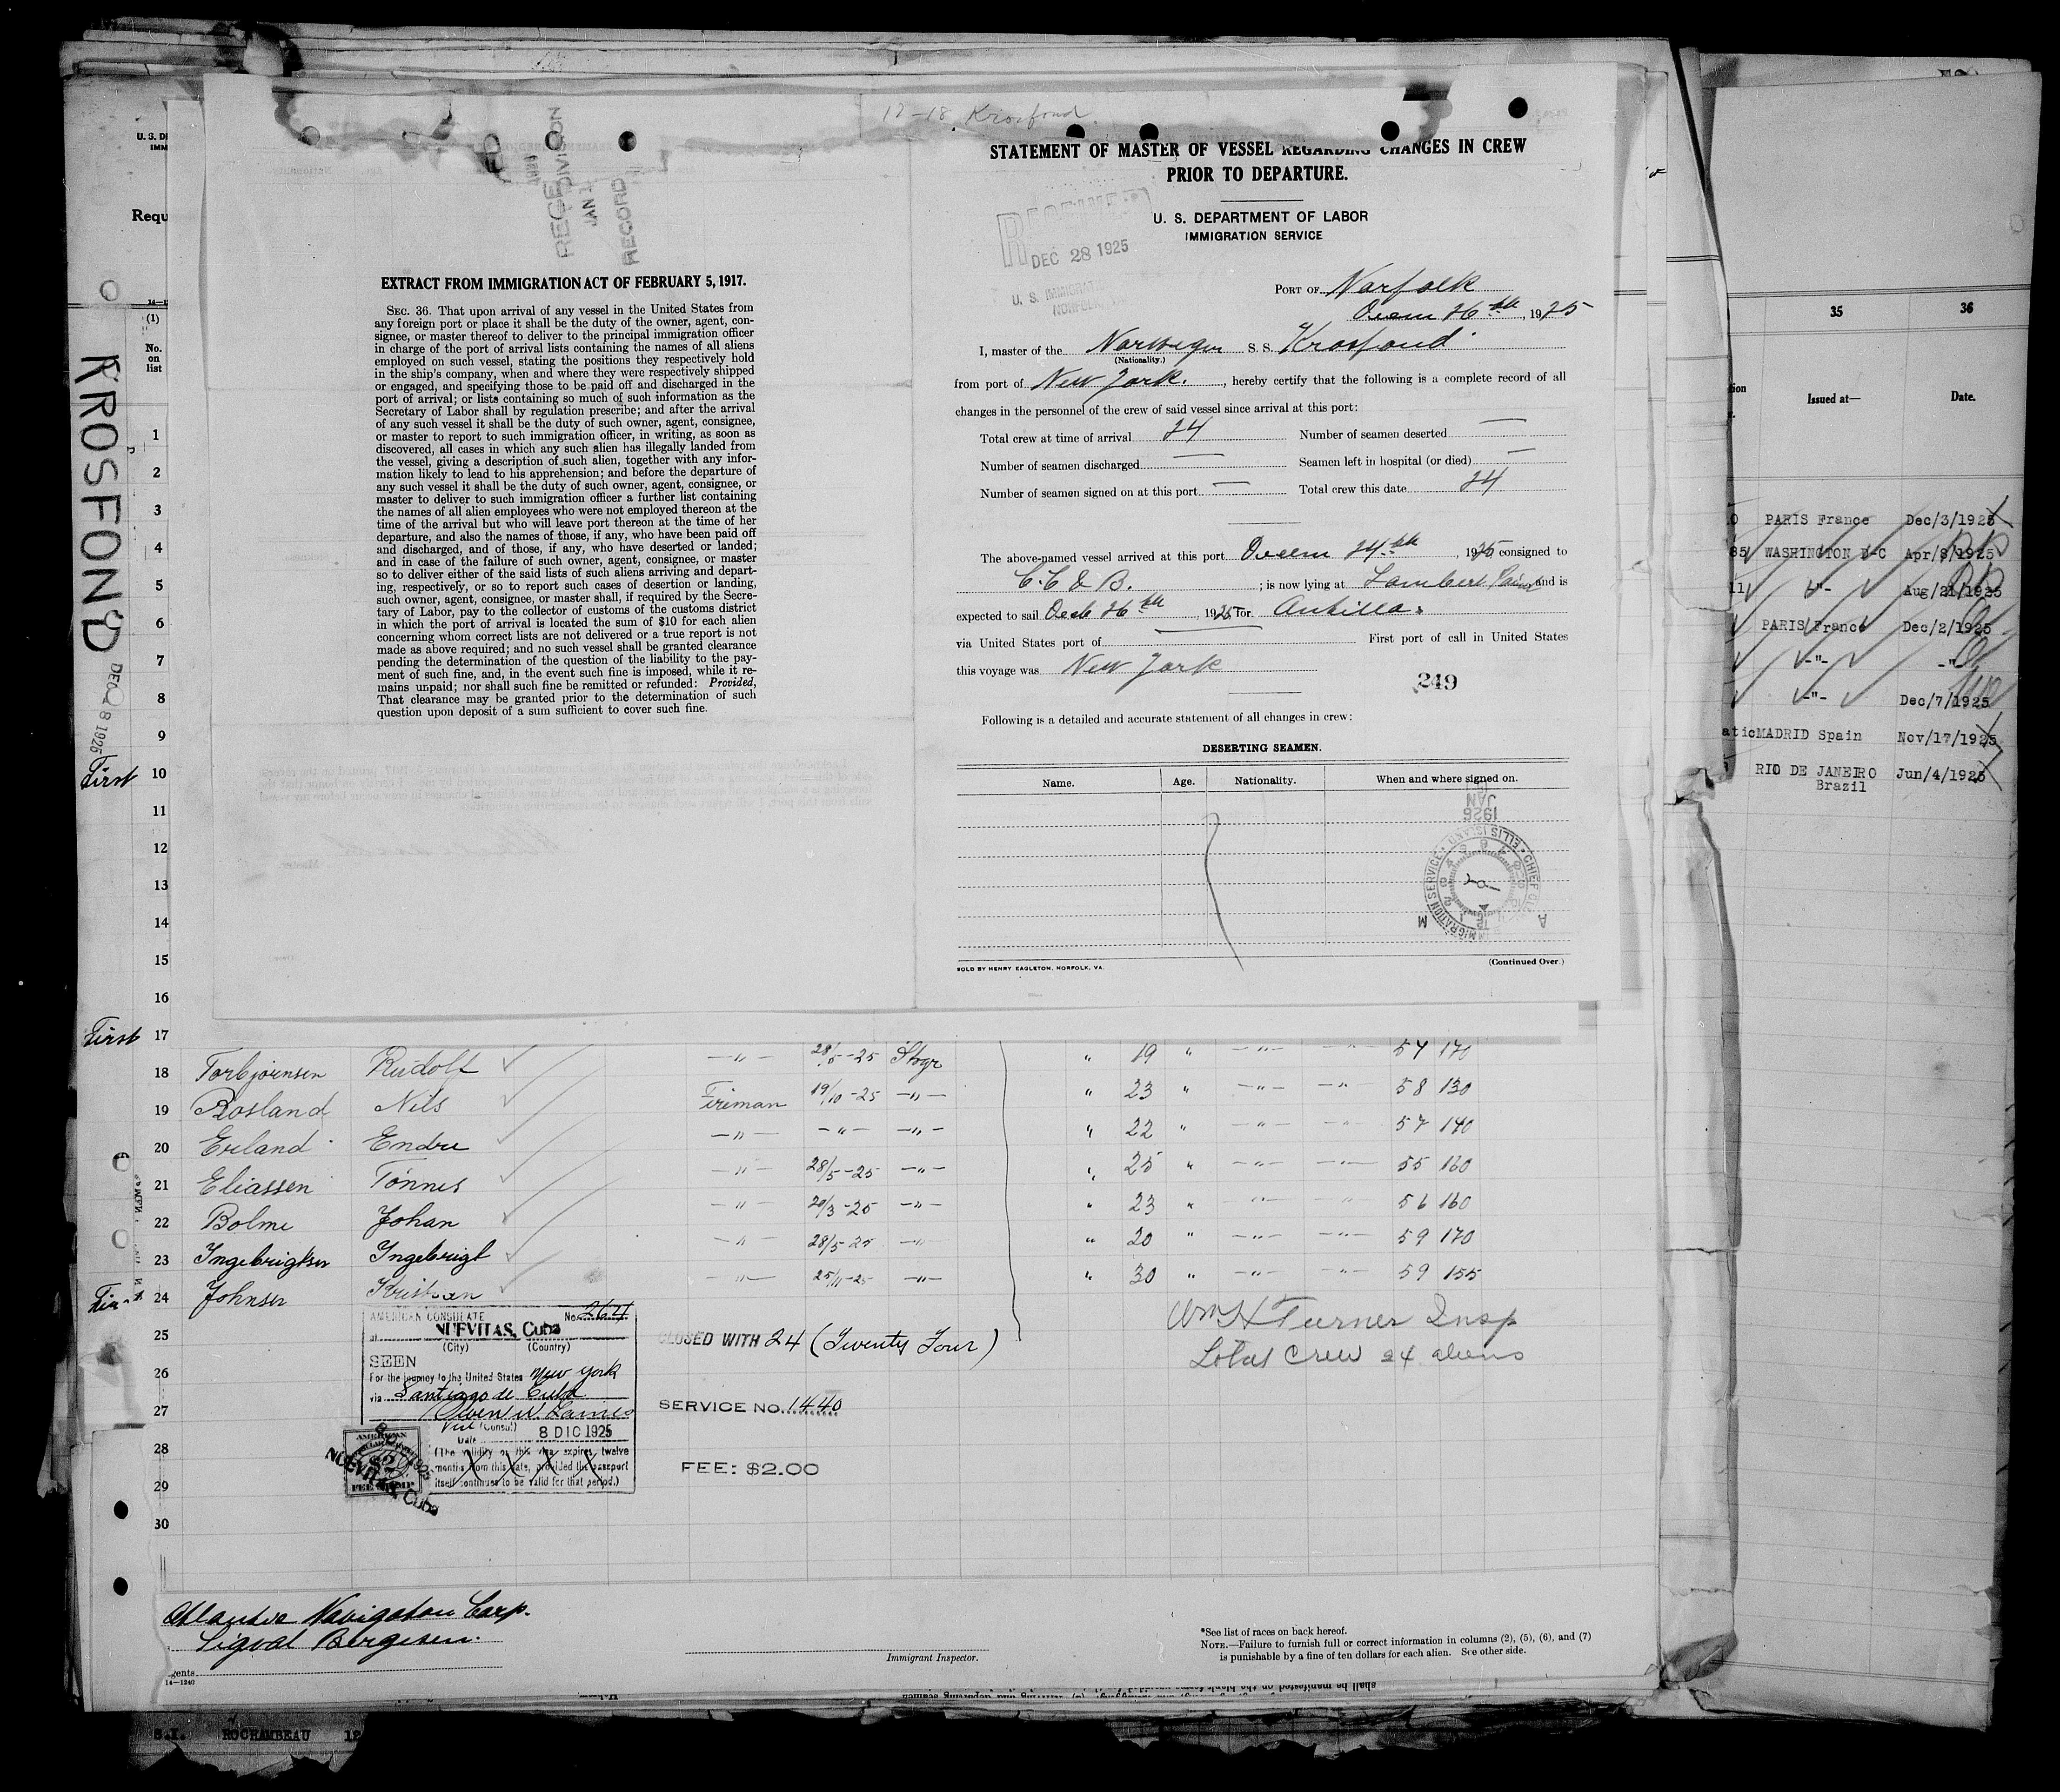 12-18 Krosfond
STATEMENT OF MASTER OF VESSEL REGARDING CHANGES IN CREW
PRIOR TO DEPARTURE.
U. S. DEPARTMENT OF LABOR
IMMIGRATION SERVICE
RECEIVED
DEC 28 1925
U. S. IMMIGRATION
NORFOLK
PORT OF Norfolk
Decem 26th, 1925
I, master of the Norwegian S. S. Krosfond
(Nationality.)
from port of New York., hereby certify that the following is a complete record of all
changes in the personnel of the crew of said vessel since arrival at this port:
Total crew at time of arrival 24 Number of seamen deserted —
Number of seamen discharged — Seamen left in hospital (or died) —
Number of seamen signed on at this port — Total crew this date 24
The above-named vessel arrived at this port Decem 24th, 1925 consigned to
C. C. & B. ; is now lying at Lambert Point and is
expected to sail Decb 26th, 1925 for Antilla.
via United States port of — First port of call in United States
this voyage was New York
249
Following is a detailed and accurate statement of all changes in crew:
DESERTING SEAMEN.
Name. Age. Nationality. When and where signed on.
JAN
1926
IMMIGRATION SERVICE • ELLIS ISLAND • CHIEF CL
A M
SOLD BY HENRY EAGLETON, NORFOLK, VA.
(Continued Over.)
RECE DIVISION
JAN 1
RECORD
EXTRACT FROM IMMIGRATION ACT OF FEBRUARY 5, 1917.
SEC. 36. That upon arrival of any vessel in the United States from
any foreign port or place it shall be the duty of the owner, agent, con-
signee, or master thereof to deliver to the principal immigration officer
in charge of the port of arrival lists containing the names of all aliens
employed on such vessel, stating the positions they respectively hold
in the ship's company, when and where they were respectively shipped
or engaged, and specifying those to be paid off and discharged in the
port of arrival; or lists containing so much of such information as the
Secretary of Labor shall by regulation prescribe; and after the arrival
of any such vessel it shall be the duty of such owner, agent, consignee,
or master to report to such immigration officer, in writing, as soon as
discovered, all cases in which any such alien has illegally landed from
the vessel, giving a description of such alien, together with any infor-
mation likely to lead to his apprehension; and before the departure of
any such vessel it shall be the duty of such owner, agent, consignee, or
master to deliver to such immigration officer a further list containing
the names of all alien employees who were not employed thereon at the
time of the arrival but who will leave port thereon at the time of her
departure, and also the names of those, if any, who have been paid off
and discharged, and of those, if any, who have deserted or landed;
and in case of the failure of such owner, agent, consignee, or master
so to deliver either of the said lists of such aliens arriving and depart-
ing, respectively, or so to report such cases of desertion or landing,
such owner, agent, consignee, or master shall, if required by the Secre-
tary of Labor, pay to the collector of customs of the customs district
in which the port of arrival is located the sum of $10 for each alien
concerning whom correct lists are not delivered or a true report is not
made as above required; and no such vessel shall be granted clearance
pending the determination of the question of the liability to the pay-
ment of such fine, and, in the event such fine is imposed, while it re-
mains unpaid; nor shall such fine be remitted or refunded: Provided,
That clearance may be granted prior to the determination of such
question upon deposit of a sum sufficient to cover such fine.
U. S. D
IMM
Requ
14-1
(1)
No.
on
list
KROSFOND
DEC 8 1925
1
2
3
4
5
6
7
8
9
First 10
11
12
13
14
15
16
First 17
18 Torbjörnsen Rudolf —"— 28/5-25 Stvgr " 19 " —"— —"— 5 7 170
19 Rosland Nils Fireman 19/10-25 —"— " 23 " —"— —"— 5 8 130
20 Eriland Endre —"— —"— —"— " 22 " —"— —"— 5 7 140
21 Eliassen Tönnes —"— 28/5-25 —"— " 25 " —"— —"— 5 5 160
22 Bolme Johan —"— 20/3-25 —"— " 23 " —"— —"— 5 6 160
23 Ingebrigtsen Ingebrigt —"— 28/5-25 —"— " 20 " —"— —"— 5 9 170
24 Johnsen Kristian —"— 25/11-25 —"— " 30 " —"— —"— 5 9 155
25
26
27
28
29
30
AMERICAN CONSULATE No. 264
at NUEVITAS, Cuba
(City) (Country)
SEEN
For the journey to the United States New York
via Santiago de Cuba
Vice (Consul)
Date 8 DIC 1925
(The validity of this visa expires twelve
months from this date, provided the passport
itself continues to be valid for that period.)
AMERICAN
$2
FEE STAMP
NUEVITAS, Cuba
CLOSED WITH 24 (Twenty Four)
SERVICE NO. 1440
FEE: $2.00
Wm H Turner Insp
Total Crew 24 aliens
Atlantic Navigation Corp.
Sigval Bergesen.
gents
14-1240
Immigrant Inspector.
*See list of races on back hereof.
NOTE.—Failure to furnish full or correct information in columns (2), (5), (6), and (7)
is punishable by a fine of ten dollars for each alien. See other side.
35 36
Issued at— Date.
PARIS France Dec/3/1925
85 WASHINGTON D-C Apr/8/1925
11 -"- Aug/21/1925
PARIS France Dec/2/1925
-"- -"-
-"- Dec/7/1925
atic MADRID Spain Nov/17/1925
RIO DE JANEIRO Jun/4/1925
Brazil
S.I. ROCHAMBEAU 12